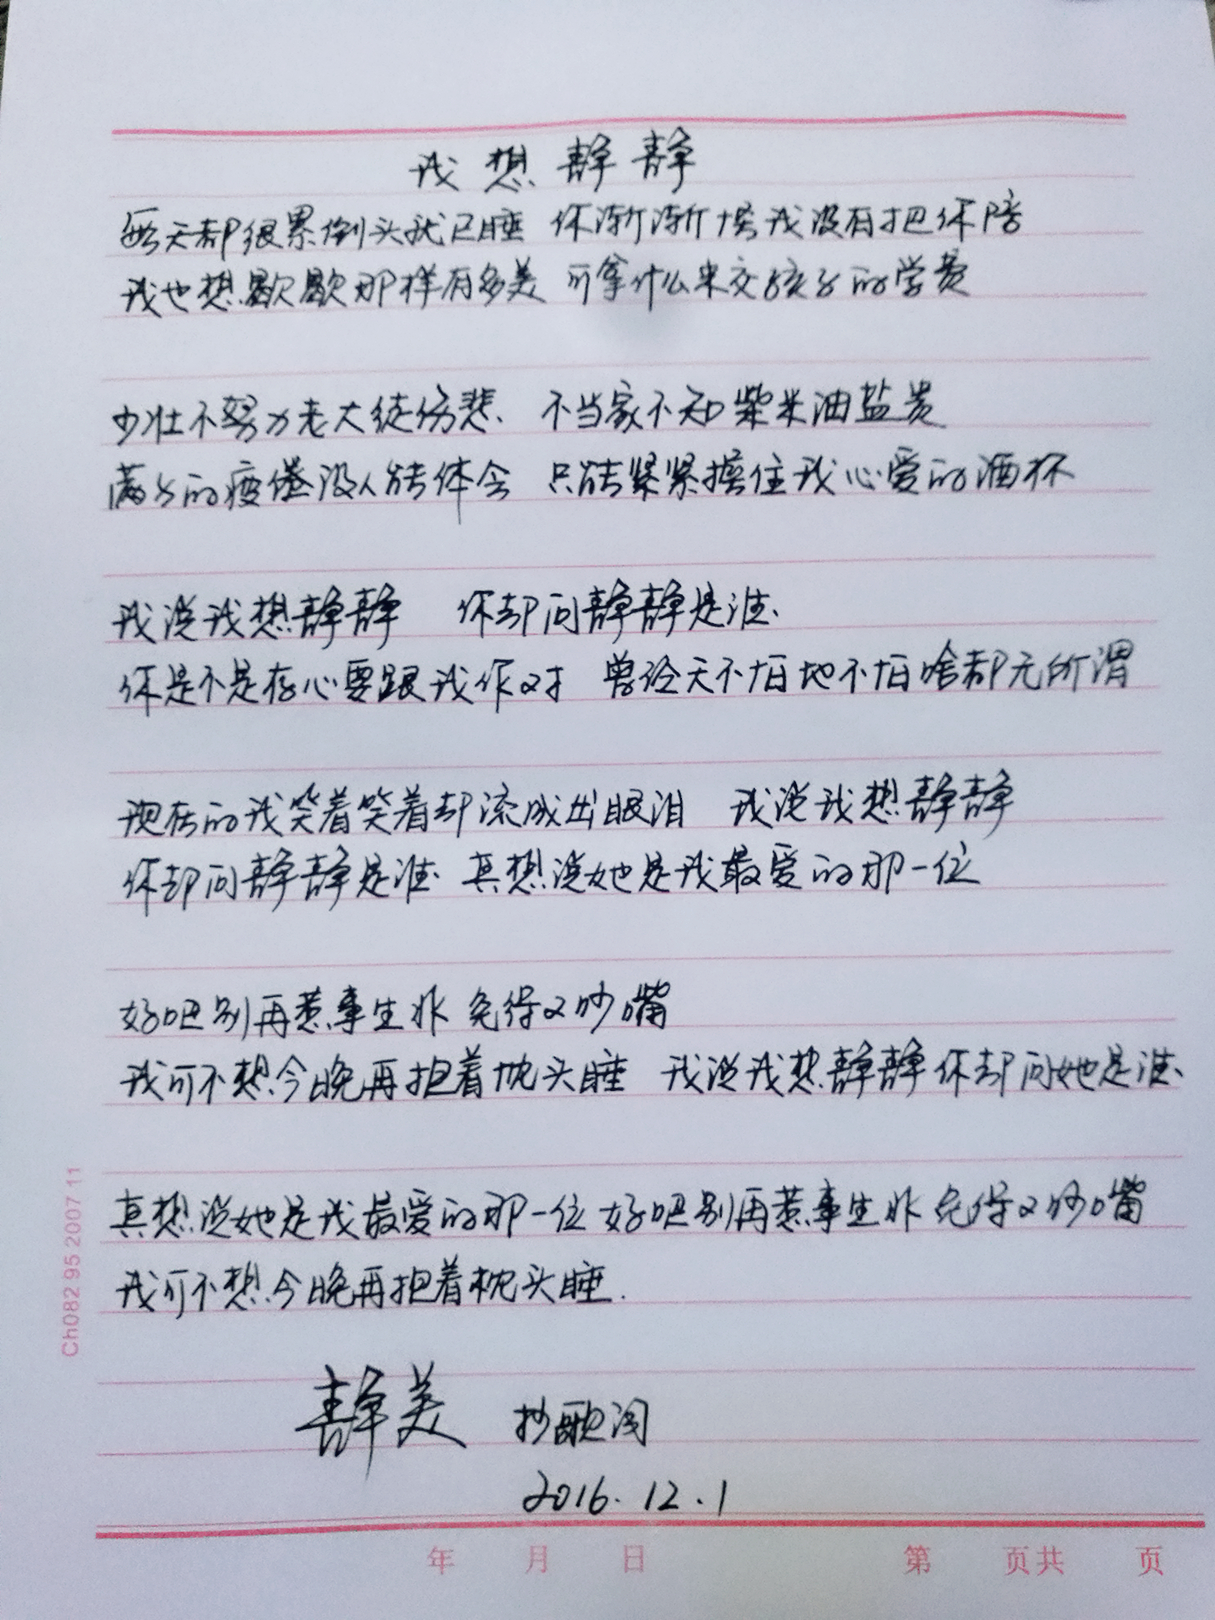 我想静静
每天都很累倒头就已睡 你渐渐埃我没有把你陪
我也想歇歇那样有多美 可拿什么来交孩子的学费
少壮不努力老大徒伤悲 不当家不知柴米油盐贵
满身的疲倦没人能体会 只能紧紧握住我心爱的酒杯
我说我想静静 你却问静静是谁
你是不是存心要跟我作对 曾经天不怕地不怕啥都无所谓
现在的我笑着笑着却流成出眼泪 我说我想静静
你却问静静是谁 真想说她是我最爱的那一位
好吧别再惹事生非 免得又吵嘴
我可不想今晚再抱着枕头睡 我说我想静静你却问她是谁
真想说她是我最爱的那一位 好吧别再惹事生非 免得又吵嘴
我可不想今晚再抱着枕头睡.
静美 抄歌词
2016.12.1
年 月 日 第 页共 页
Ch082 95 2007 11